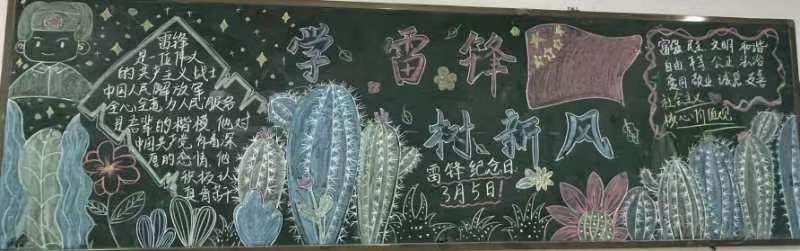 雷锋
是一位伟人
的共产主义战士
中国人民解放军
全心全意为人民服务
是吾辈的楷模他对
中国共产党有着深
厚的感情他
积极认
真奋斗
学雷锋
树新风
雷锋纪念日
3月5日!
富强 民主 文明 和谐
自由 平等 公正 法治
爱国 敬业 诚信 友善
社会主义
核心价值观